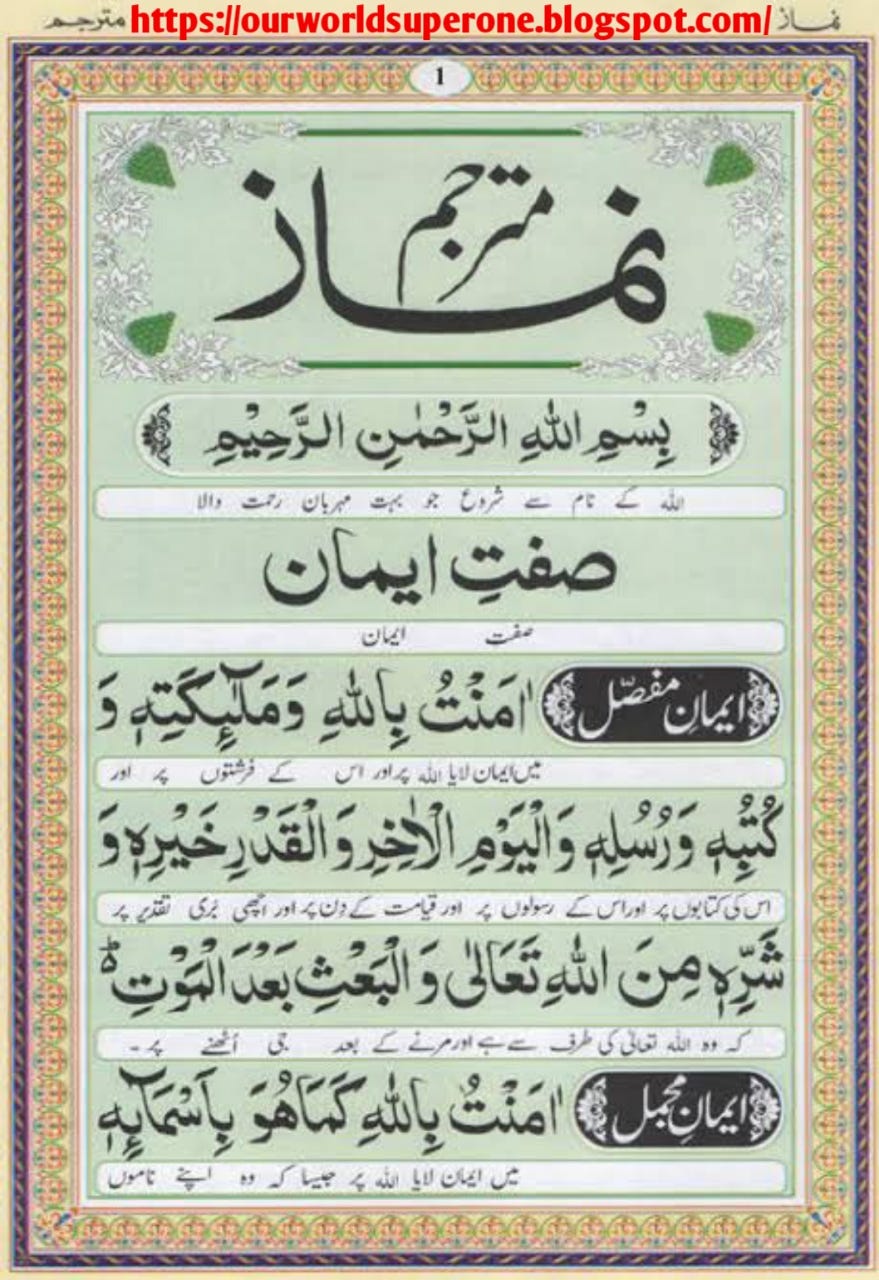 نماز https://ourworldsuperone.blogspot.com/ مترجم
1
نماز مترجم
بِسْمِ اللهِ الرَّحْمٰنِ الرَّحِيْمِ
اللہ کے نام سے شروع جو بہت مہربان رحمت والا
صفتِ ایمان
صفت ایمان
ایمانِ مفصّل اٰمَنْتُ بِاللهِ وَمَلٰٓئِكَتِهٖ وَ
میں ایمان لایا اللہ پر اور اس کے فرشتوں پر اور
كُتُبِهٖ وَرُسُلِهٖ وَالْيَوْمِ الْاٰخِرِ وَالْقَدْرِ خَيْرِهٖ وَ
اس کی کتابوں پر اور اس کے رسولوں پر اور قیامت کے دِن پر اور اچھی بُری تقدیر پر
شَرِّهٖ مِنَ اللهِ تَعَالٰى وَالْبَعْثِ بَعْدَ الْمَوْتِ ؕ
کہ وہ اللہ تعالیٰ کی طرف سے ہے اور مرنے کے بعد جی اُٹھنے پر۔
ایمانِ مجمل اٰمَنْتُ بِاللهِ كَمَا هُوَ بِاَسْمَآئِهٖ
میں ایمان لایا اللہ پر جیسا کہ وہ اپنے ناموں